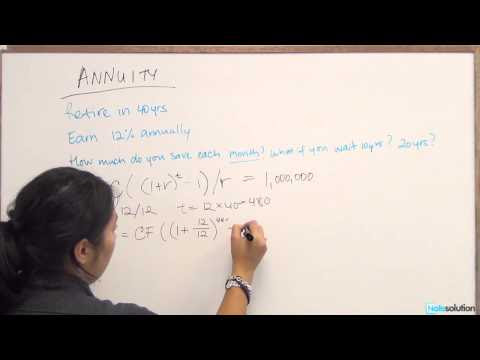 ANNUITY
Retire in 40yrs
Earn 12% annually
How much do you save each month? what if you wait 10yrs? 20yrs?
((1+r)^t -1)/r = 1,000,000
12/12 t= 12×40=480
= CF((1+ 12/12)^480 -
Notesolution